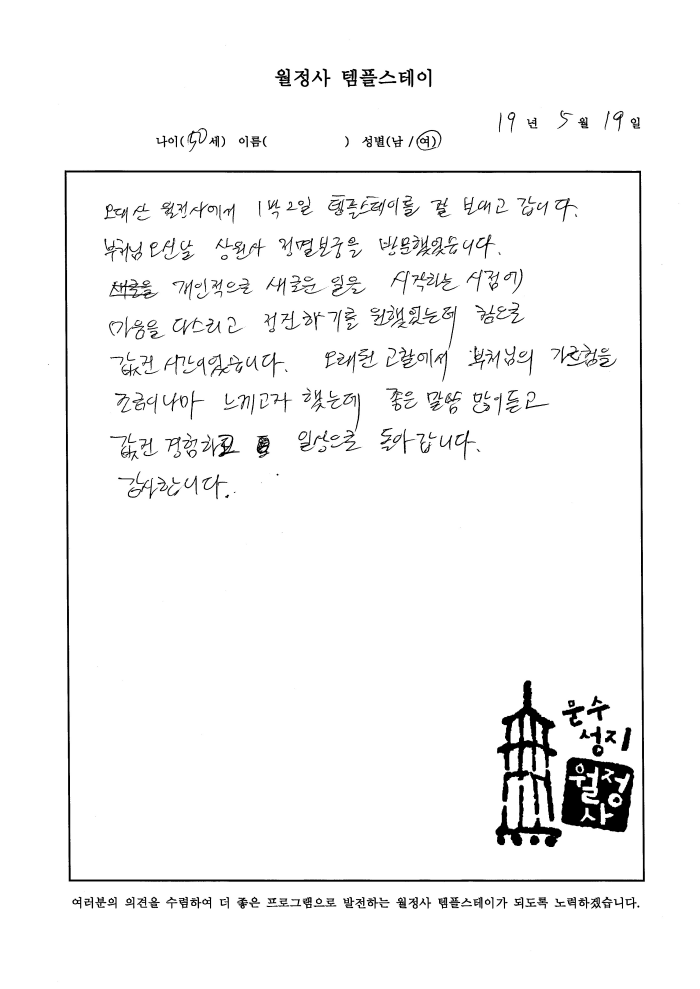 월정사 템플스테이
19 년 5 월 19 일
나이( 50 세) 이름( ) 성별(남 / 여)
오대산 월정사에서 1박2일 템플스테이를 잘 보내고 갑니다.
부처님오신날 상원사 적멸보궁을 방문했었습니다.
새로을 개인적으로 새로운 일을 시작하는 시점에
마음을 다스리고 정진하기를 원했었는데 참으로
값진 시간이었습니다. 오래된 고찰에서 부처님의 가르침을
조금이나마 느끼고자 했는데 좋은 말씀 많이듣고
값진 경험하고 일상으로 돌아갑니다.
감사합니다.
문수
성지
월정
사
여러분의 의견을 수렴하여 더 좋은 프로그램으로 발전하는 월정사 템플스테이가 되도록 노력하겠습니다.